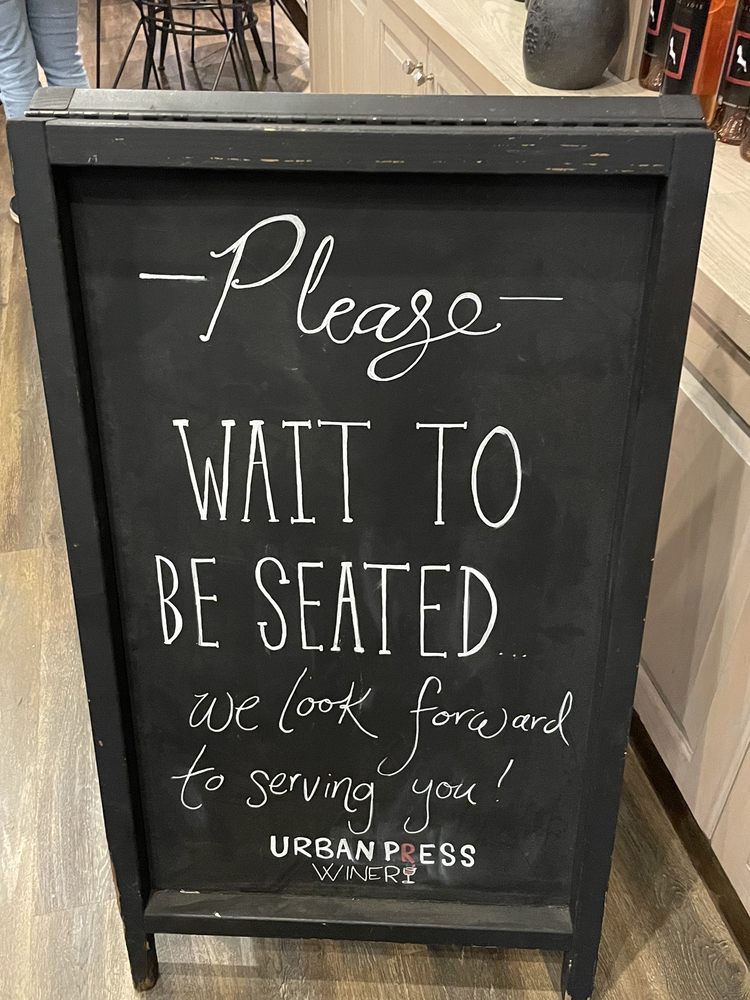 Please
WAIT TO
BE SEATED...
we look forward
to serving you!
URBAN PRESS
WINERY